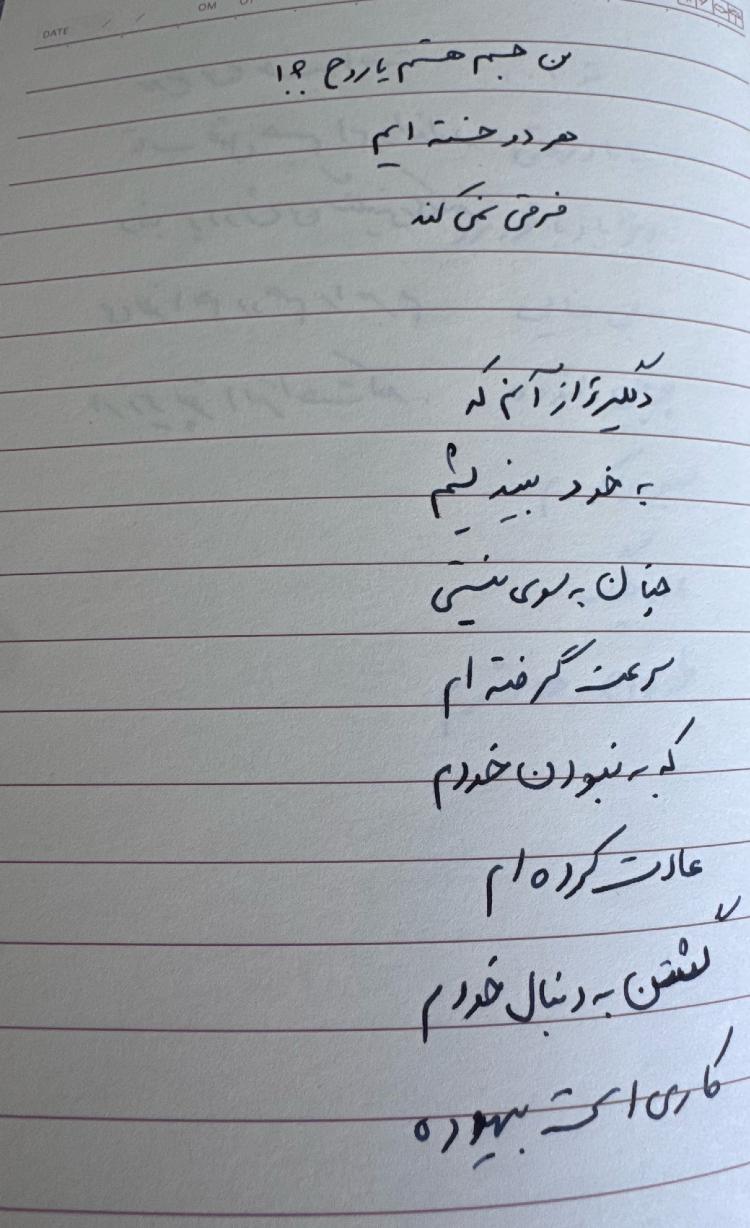 DATE / /
من جسم هستم یا روح ؟!
هر دو خسته ایم
فرقی نمی کند
دلگیرتر از آنم که
به خود بیندیشم
چنان به سوی نیستی
سرعت گرفته ام
که به نبودن خودم
عادت کرده ام
گشتن به دنبال خودم
کاری است بیهوده